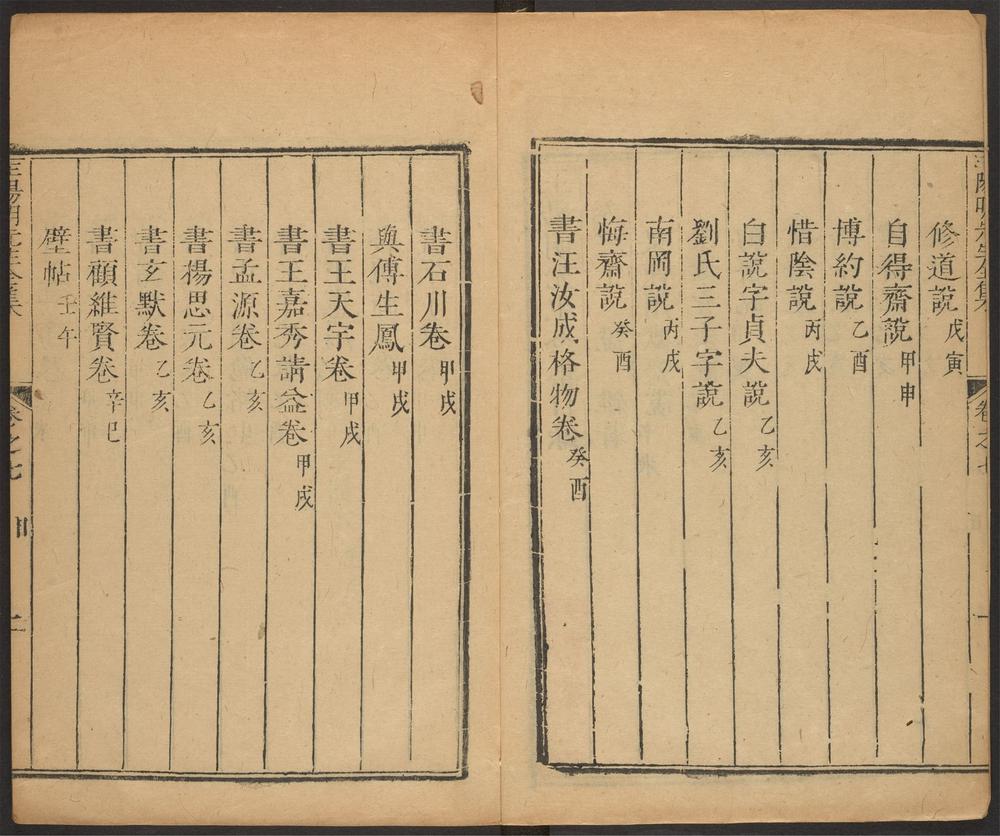 王陽明先生全集 卷之七
修道說 戊寅
自得齋說 甲申
博約說 乙酉
惜陰說 丙戌
白說字貞夫說 乙亥
劉氏三子字說 乙亥
南岡說 丙戌
悔齋說 癸酉
書汪汝成格物卷 癸酉
書石川卷 甲戌
與傅生鳳 甲戌
書王天宇卷 甲戌
書王嘉秀請益卷 甲戌
書孟源卷 乙亥
書楊思元卷 乙亥
書玄默卷 乙亥
書顧維賢卷 辛巳
壁帖 壬午
王陽明先生全集 卷之七 二